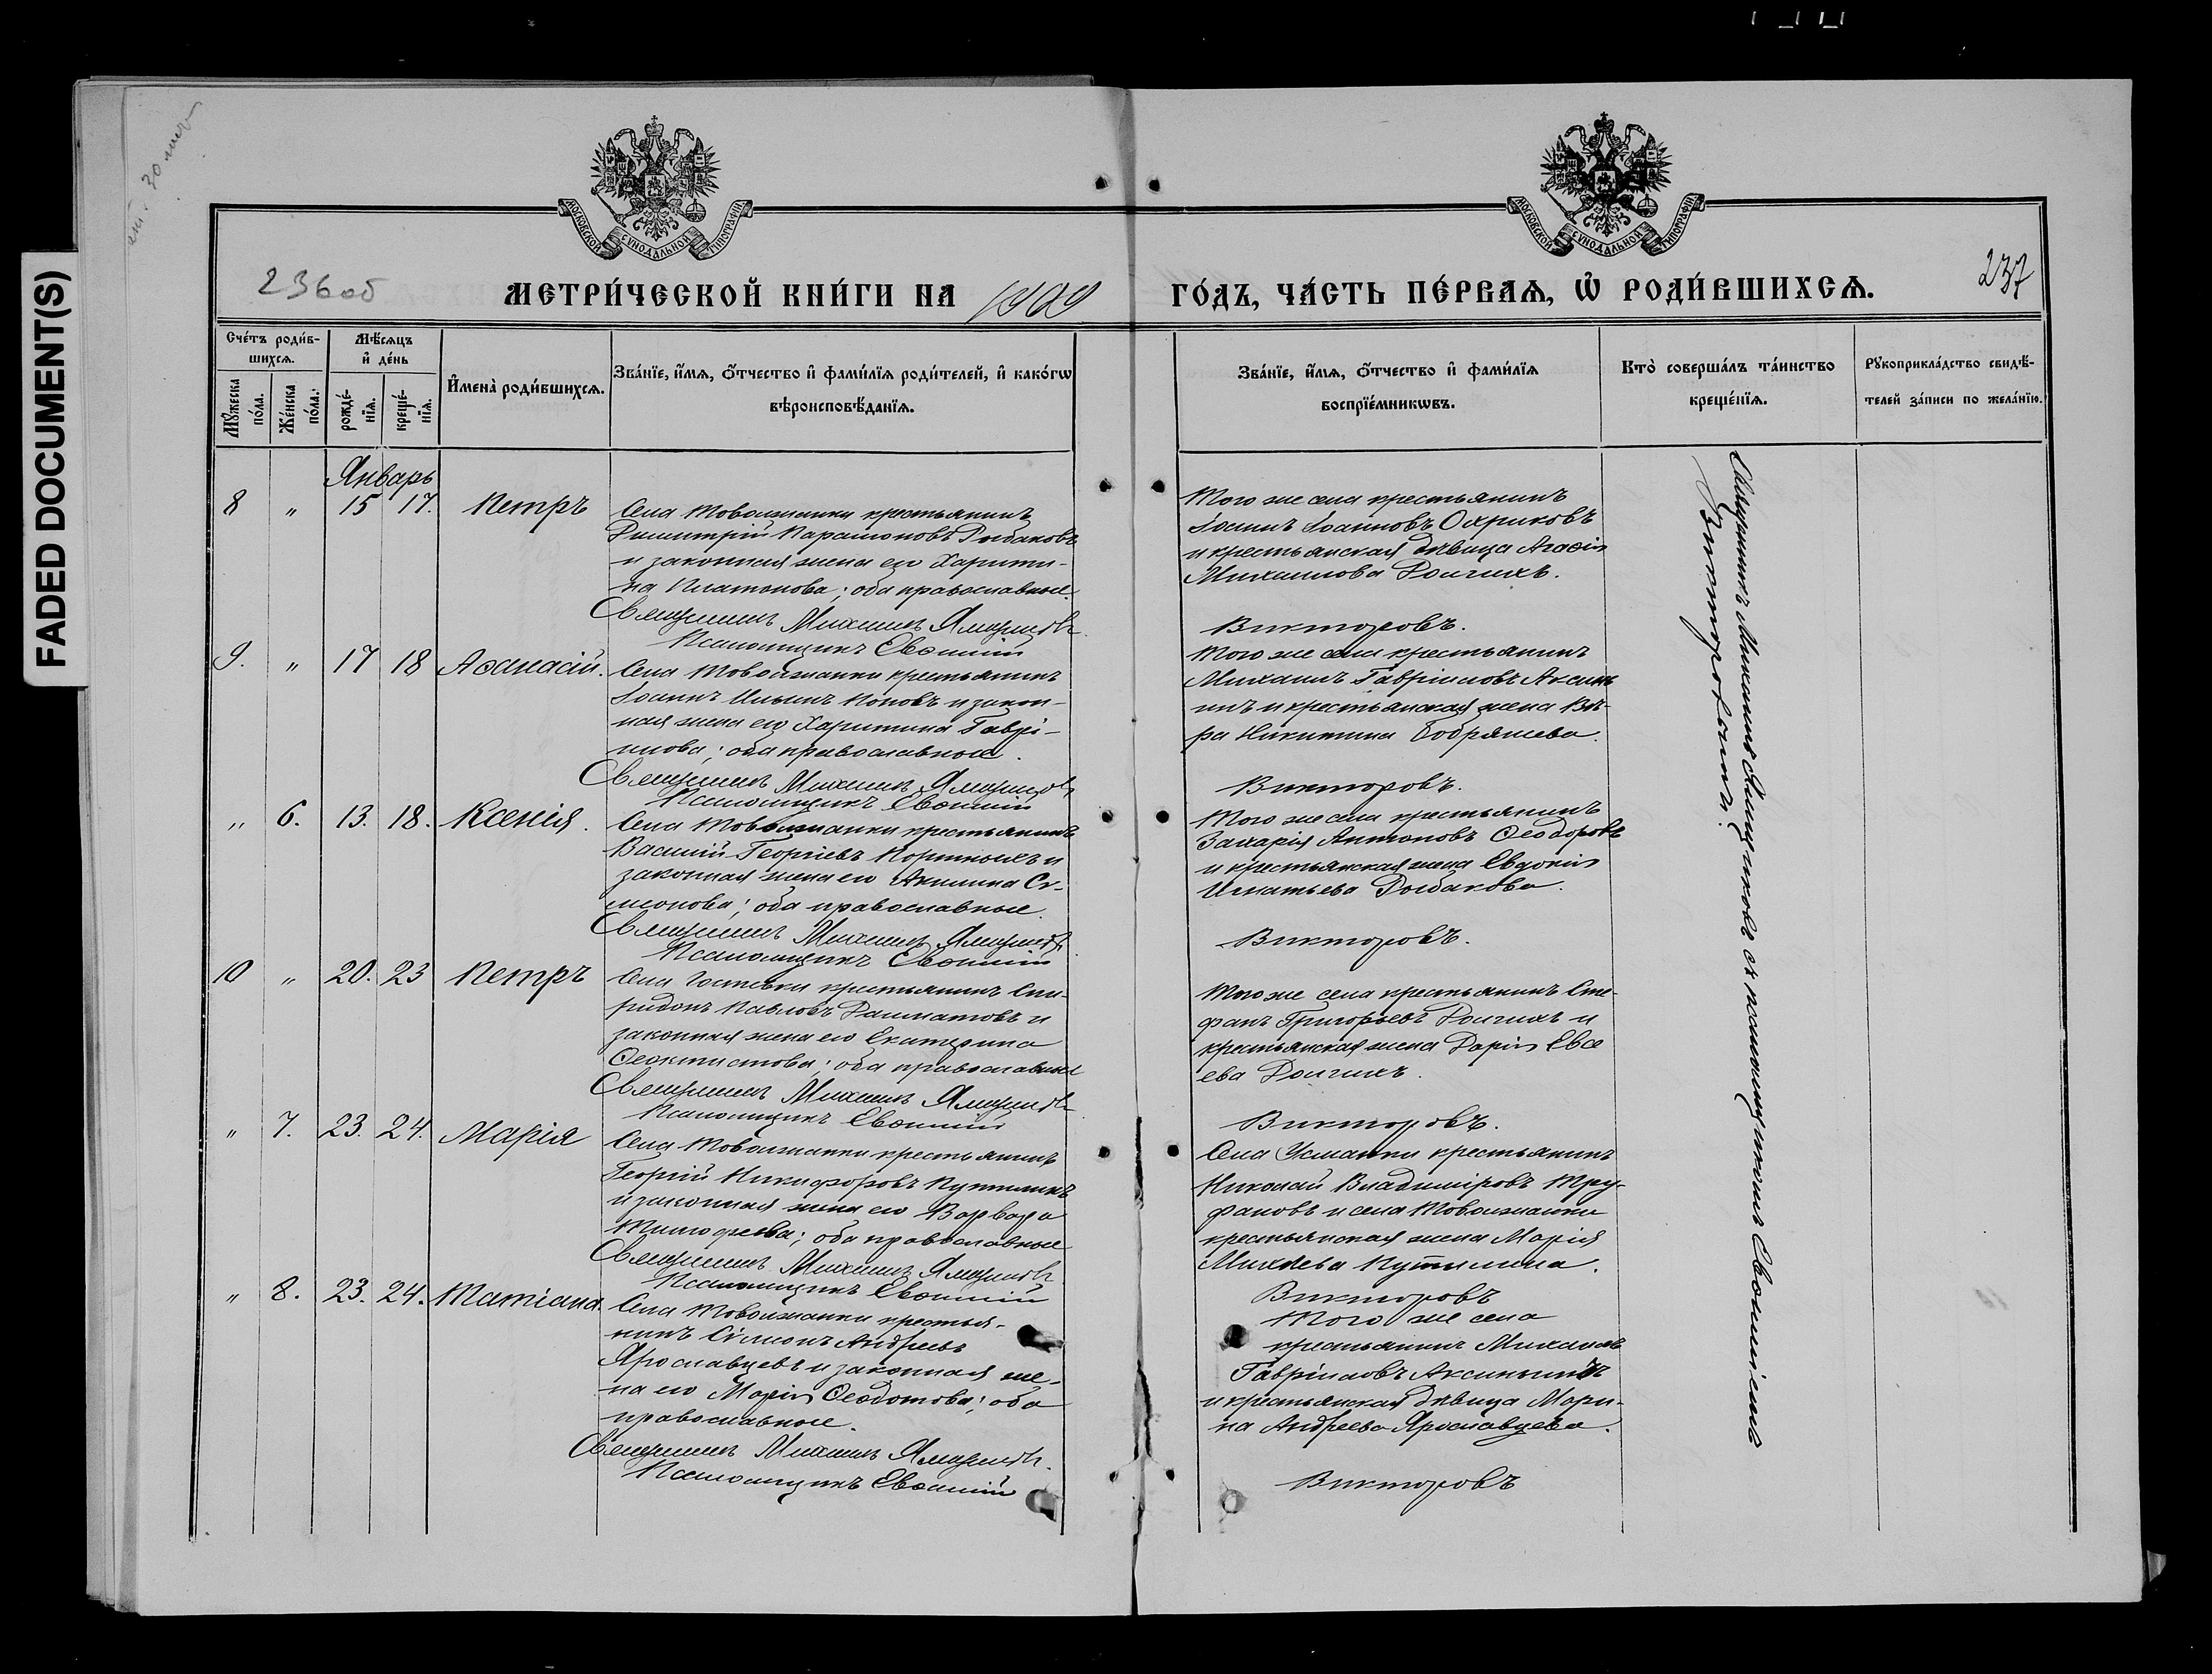 FADED DOCUMENT(S)
МОСКОВСКОЙ СѴНОДАЛЬНОЙ ТИПОГРАФІИ
МОСКОВСКОЙ СѴНОДАЛЬНОЙ ТИПОГРАФІИ
236 об
237
МЕТРИ́ЧЕСКОЙ КНИ́ГИ НА 1909 ГО́ДЪ, ЧА́СТЬ ПЕ́РВАѦ, Ѡ҆ РОДИ́ВШИХСѦ.
Сче́тъ роди́в-
шихсѧ.
Мѣ́сѧцъ
и҆ де́нь
Мꙋ́жеска
по́ла.
Же́нска
по́ла.
рожде́-
нїѧ.
креще́-
нїѧ.
И҆мена̀ роди́вшихсѧ.
Зва́нїе, и҆́мѧ, ѻ҆́тчество и҆ фами́лїѧ роди́телей, и҆ како́гѡ
вѣроисповѣ́данїѧ.
Зва́нїе, и҆́мѧ, ѻ҆́тчество и҆ фами́лїѧ
воспрїе́мникѡвъ.
Кто̀ соверша́лъ та́инство
креще́нїѧ.
Рꙋкоприкла́дство свидѣ́-
телей за́писи по жела́нїю.
Январь
8 " 15 17. Петръ
Села Товолжанки крестьянинъ
Димитрій Парамоновъ Рыбаковъ
и законная жена его Харити-
на Платонова; оба православные.
Священникъ Михаилъ Ямщиковъ
Псаломщикъ Евѳимій
Того же села крестьянинъ
Іоаннъ Іоанновъ Охриковъ
и крестьянская дѣвица Агаѳія
Михаилова Долгихъ.
Викторовъ.
9. " 17 18 Аѳанасій.
Села Товолжанки крестьянинъ
Іоаннъ Ильинъ Поповъ и закон-
ная жена его Харитина Гаврі-
илова; оба православные.
Священникъ Михаилъ Ямщиковъ
Псаломщикъ Евѳимій
Того же села крестьянинъ
Михаилъ Гавріиловъ Аксинь
инъ и крестьянская жена Вѣ-
ра Никитина Бобряшева.
Викторовъ.
" 6. 13. 18. Ксенія.
Села Товолжанки крестьянинъ
Василій Георгіевъ Коринныхъ и
законная жена его Акилина Сѵ-
меонова; оба православные.
Священникъ Михаилъ Ямщиковъ
Псаломщикъ Евѳимій
Того же села крестьянинъ
Захарія Антоновъ Ѳеодоровъ
и крестьянская жена Евдокія
Игнатьева Рыбакова.
Викторовъ.
10 " 20. 23 Петръ
Села Гостевки крестьянинъ Спи-
ридонъ Павловъ Далматовъ и
законная жена его Екатерина
Ѳеоктистова; оба православные
Священникъ Михаилъ Ямщиковъ
Псаломщикъ Евѳимій
Того же села крестьянинъ Сте-
фанъ Григорьевъ Долгихъ и
крестьянская жена Дарія Евсе
ева Долгихъ.
Викторовъ.
" 7. 23. 24. Марія
Села Товолжанки крестьянинъ
Георгій Никифоровъ Путилинъ
и законная жена его Варвара
Тимофеева; оба православные
Священникъ Михаилъ Ямщиковъ
Псаломщикъ Евѳимій
Села Усманки крестьянинъ
Николай Владиміровъ Тру-
фановъ и села Товолжанки
крестьянская жена Марія
Михеева Путилина.
Викторовъ
" 8. 23. 24. Татіана.
Села Товолжанки крестья-
нинъ Сѵмеонъ Андреевъ
Ярославцевъ и законная же-
на его Марія Ѳеодотова; оба
православные.
Священникъ Михаилъ Ямщиковъ.
Псаломщикъ Евѳимій
Того же села
крестьянинъ Михаилъ
Гавріиловъ Аксиньинъ
и крестьянская дѣвица Мари-
на Андреева Ярославцева.
Викторовъ
Священникъ Михаилъ Ямщиковъ съ псаломщикомъ Евѳиміемъ
Викторовымъ.